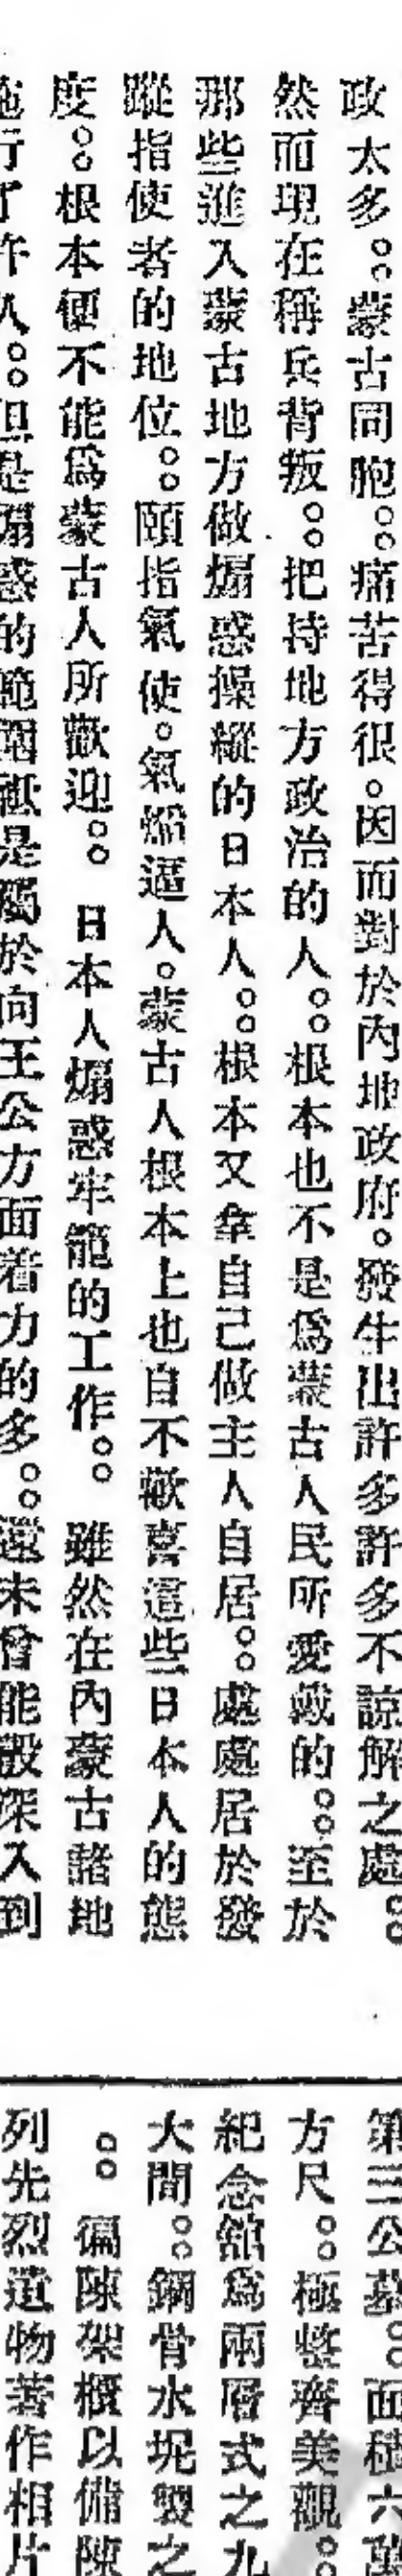 政太多。。蒙古同胞。。痛苦得很。因而對於內地政府。發生出許多許多不諒解之處。。
然而現在稱兵背叛。。把持地方政治的人。。根本也不是爲蒙古人民所愛戴的。。至於
那些進入蒙古地方做煽惑操縱的日本人。。根本又拿自己做主人自居。。處處居於發
蹤指使者的地位。。頤指氣使。氣燄逼人。蒙古人根本上也自不歡喜這些日本人的態
度。。根本便不能爲蒙古人所歡迎。。日本人煽惑牢籠的工作。。雖然在內蒙古諸地
施行了許久。。但是煽惑的範圍祗是屬於向王公方面着力的多。。還未曾能彀深入到
第三公墓。。面積六萬
方尺。。極整齊美觀。。
紀念舘爲兩層式之九
大間。。鋼骨水坭製之
。。徧陳架櫃以備陳
列先烈遺物著作相片